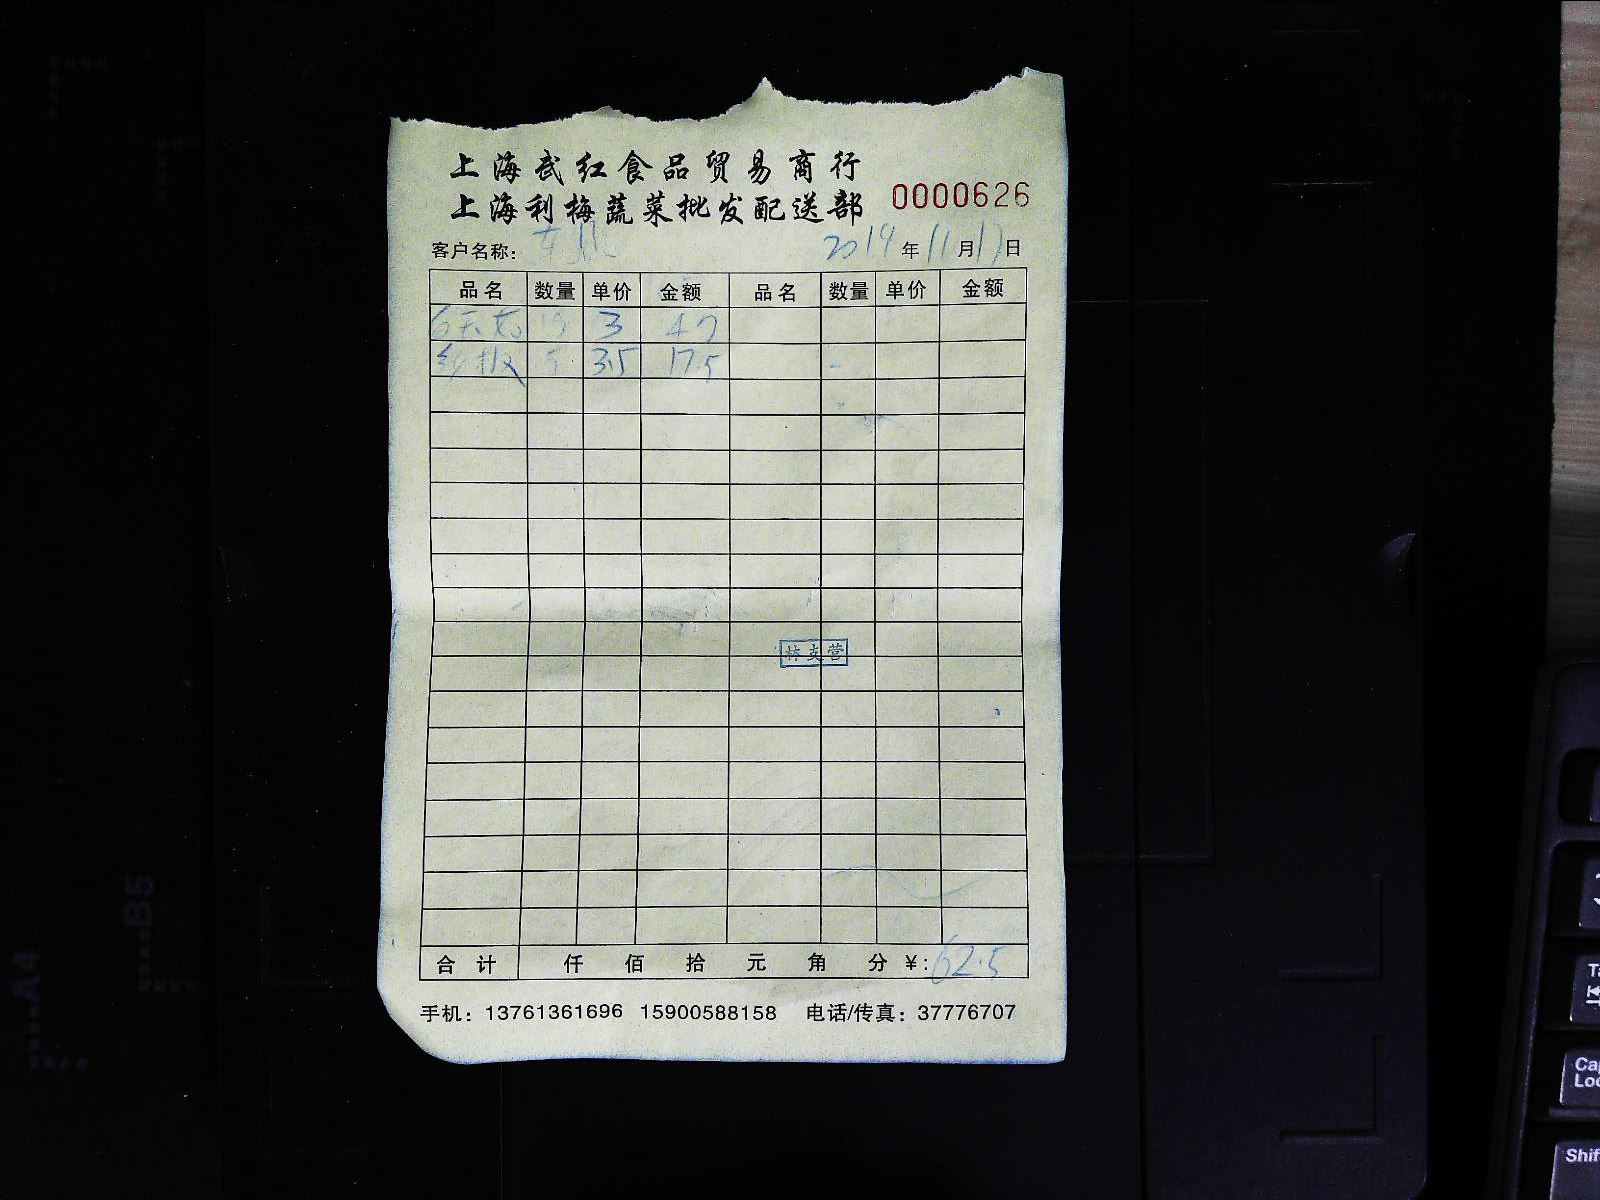 上海武红食品贸易商行
上海利梅蔬菜批发配送部
0000626
客户名称：
2019年11月17日
品名 数量 单价 金额 品名 数量 单价 金额
3
3.5 17.5
合计 仟 佰 拾 元 角 分 ¥: 62.5
手机：13761361696 15900588158 电话/传真：37776707
B5
A4
Cap
Loc
Shif